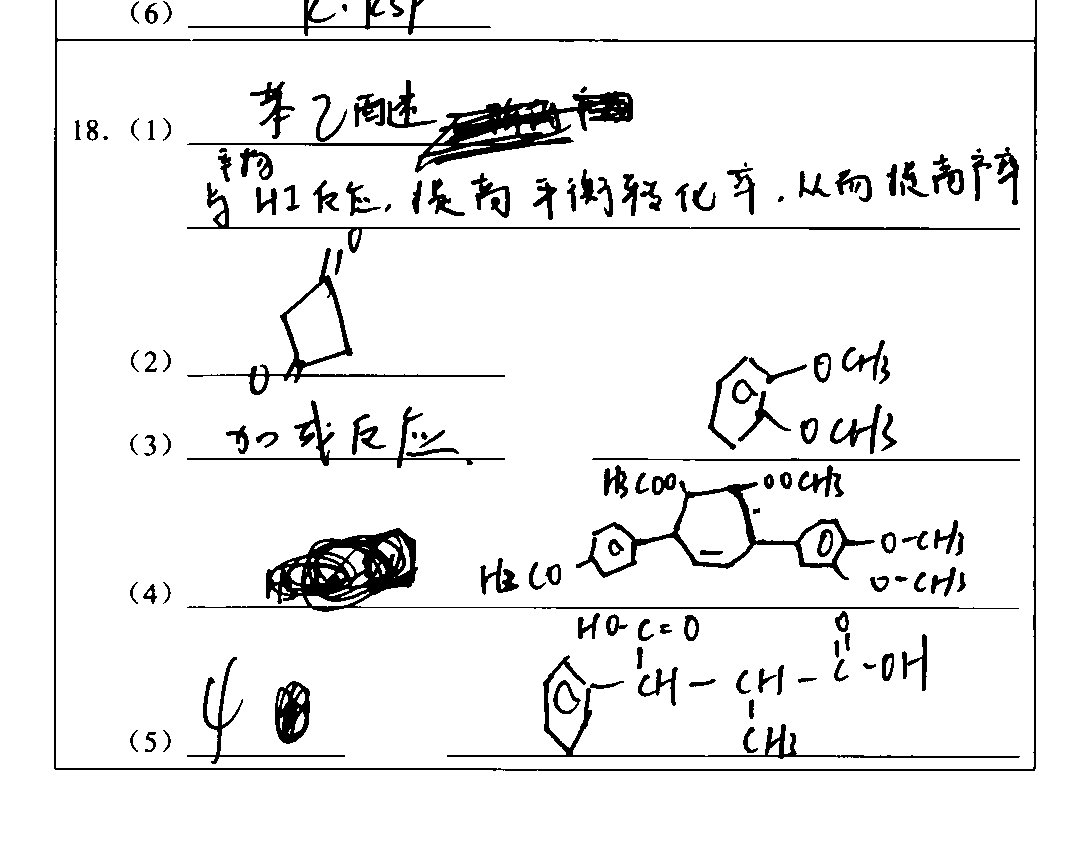 (6) K·Ksp
18.(1) 苯乙酮
产物
与HI反应,提高平衡转化率,从而提高产率
O
(2) O
OCH3
(3) 加成反应. OCH3
H3COO OOCH3
O-CH3
H3CO O-CH3
(4)
HO-C=O O
CH-CH-C-OH
(5) 4 CH3